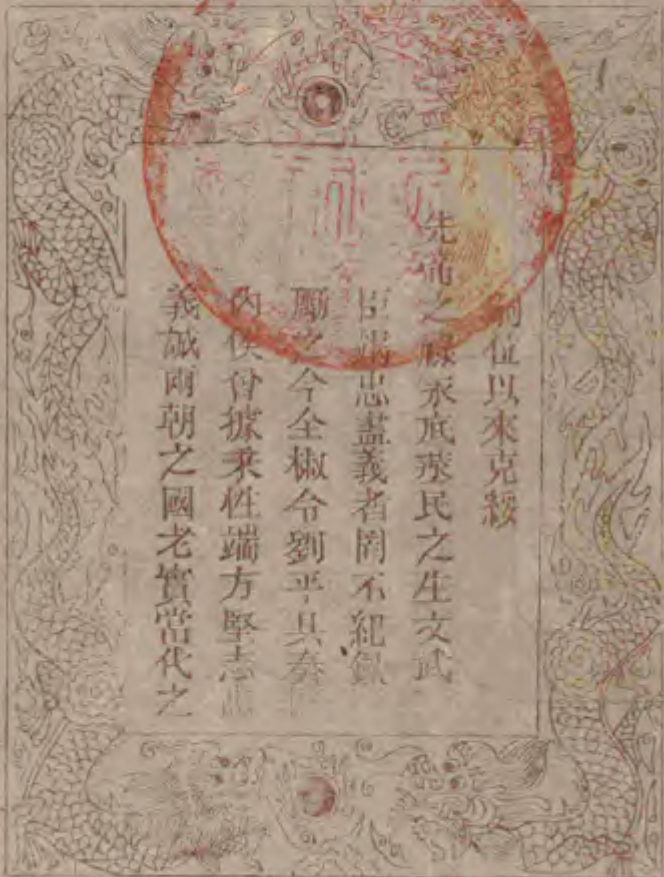 嗣位以來克綏
先帝之祿永底烝民之生文武
臣竭忠盡義者罔不紀錄
勵之今全椒令劉平具奏
內侯曾據秉性端方堅志
義誠兩朝之國老實當代之